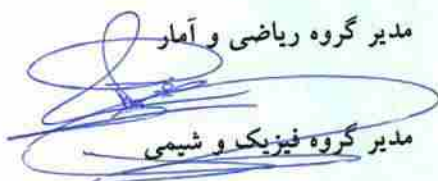 مدیر گروه ریاضی و آمار
مدیر گروه فیزیک و شیمی